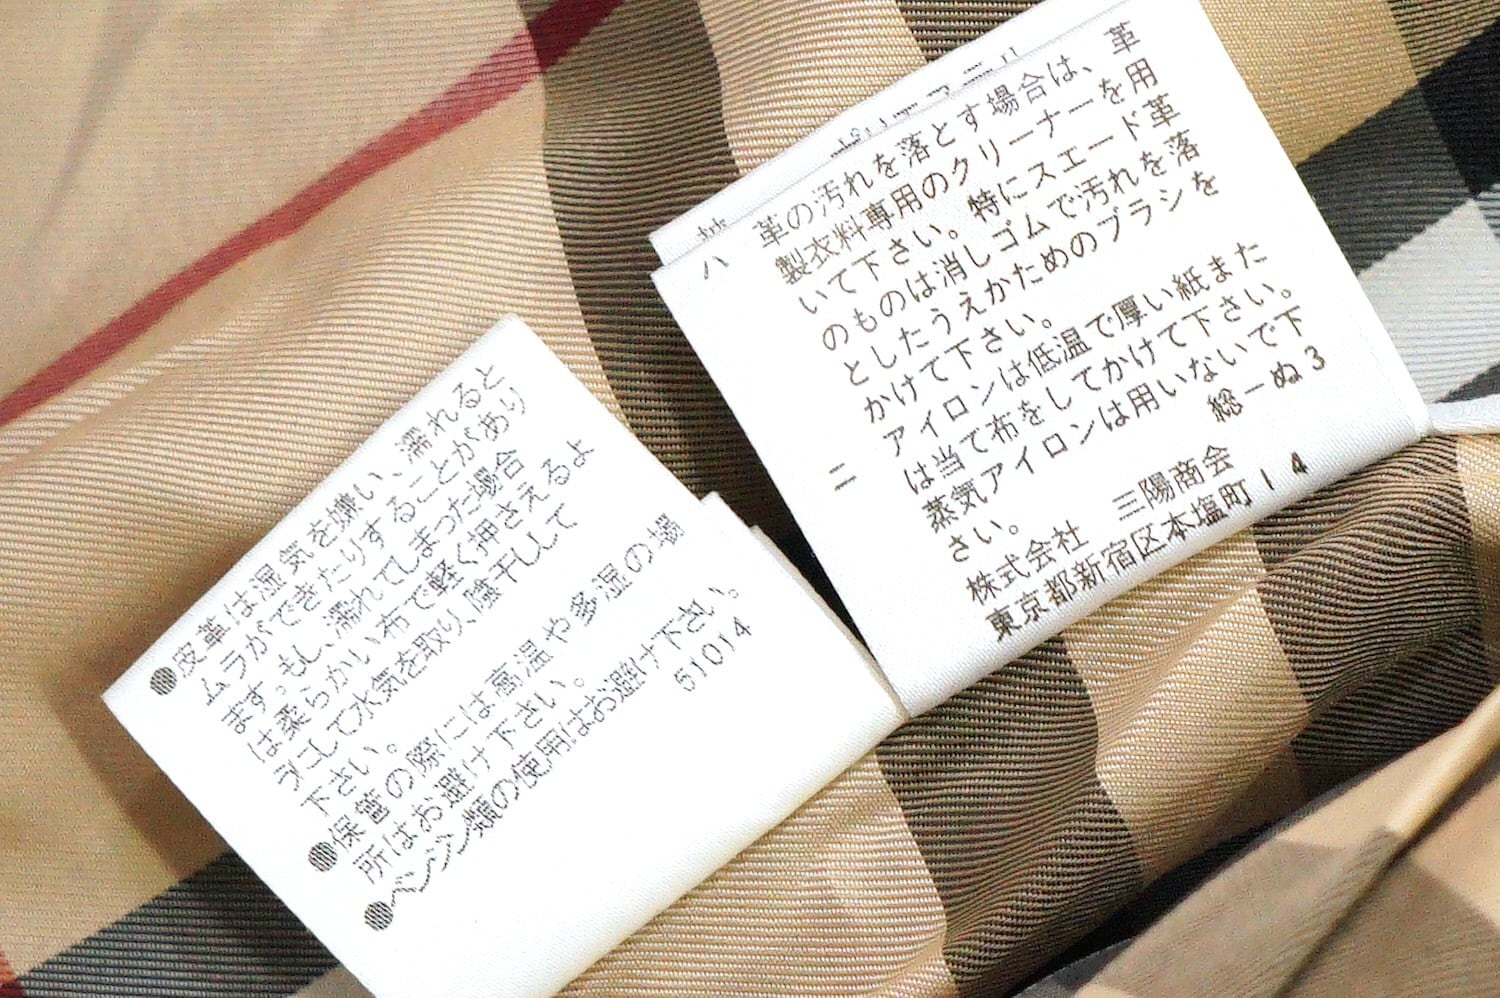 ●皮革は湿気を嫌い、濡れると
ムラができたりすることがあり
ます。もし、濡れてしまった場合
は、柔らかい布で軽く押さえるよ
うにして水気を取り、陰干しして
下さい。
●保管の際には高温や多湿の場
所はお避け下さい。
●ベンジン類の使用はお避け下さい。
51014
ハ 革の汚れを落とす場合は、革
製衣料専用のクリーナーを用
いて下さい。特にスエード革
のものは消しゴムで汚れを落
としたうえかためのブラシを
かけて下さい。
ニ アイロンは低温で厚い紙また
は当て布をしてかけて下さい。
蒸気アイロンは用いないで下
さい。
総一ぬ3
株式会社 三陽商会
東京都新宿区本塩町14